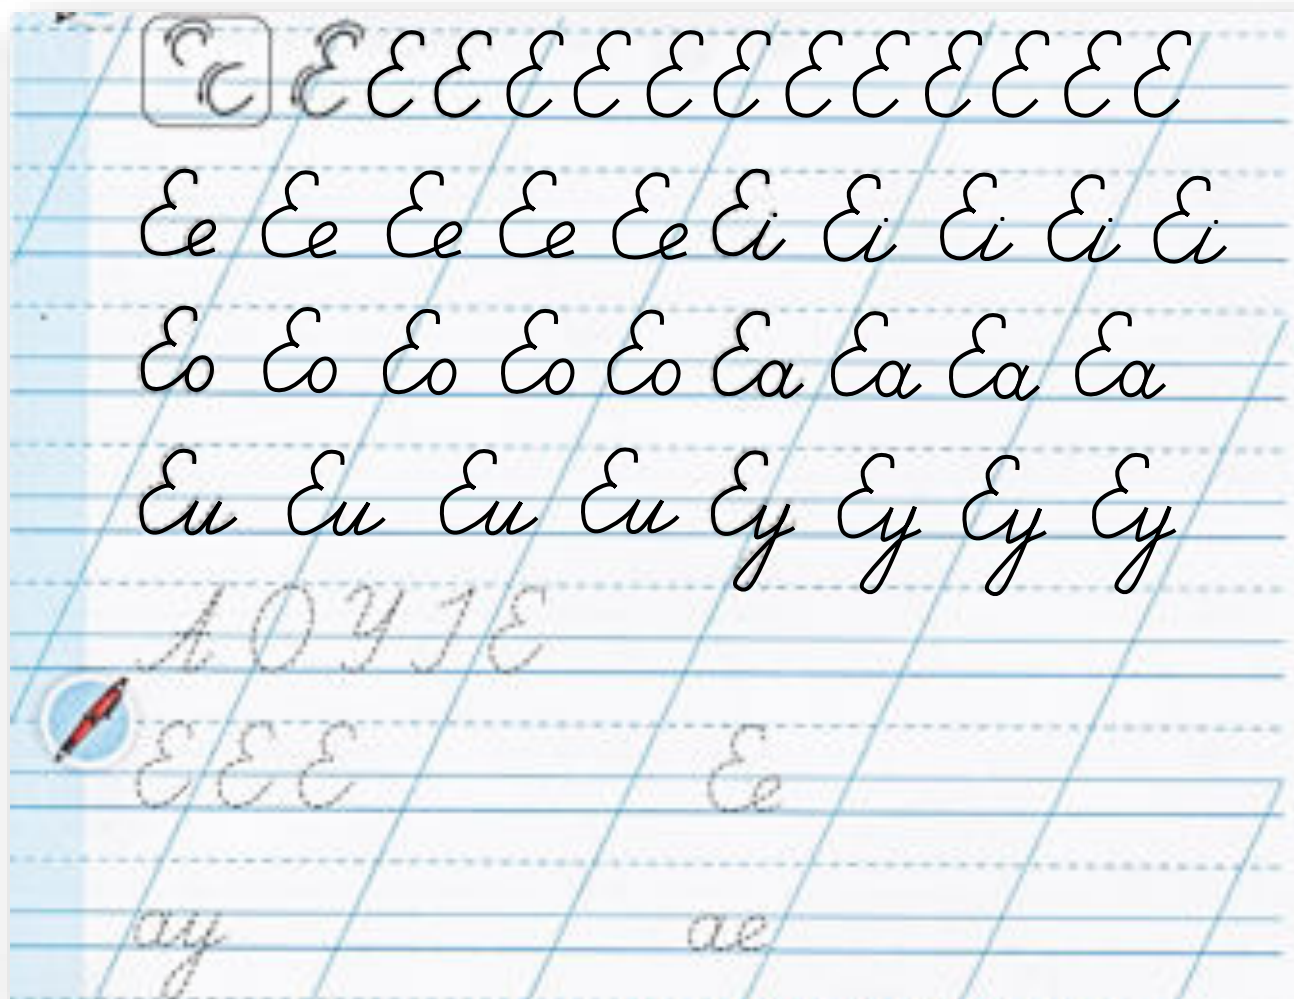 Е Е Е Е Е Е Е Е Е Е Е Е Е
Ее Ее Ее Ее Ее Еі Еі Еі Еі Еі
Ео Ео Ео Ео Ео Еа Еа Еа Еа
Еи Еи Еи Еи Еу Еу Еу Еу
А О У І Е
Е Е Е Ее
ау ае